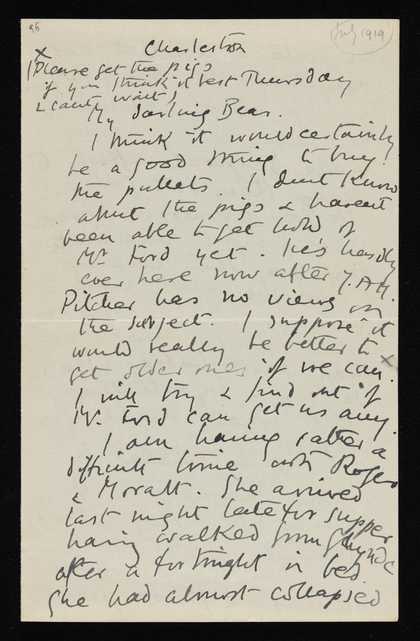 (July 1919)
Charleston
x
(Please get the pigs
if you think it best Thursday
& can't wait)
My darling Bear.
I think it would certainly
be a good thing to buy
the pullets. I dont know
about the pigs & havent
been able to get hold of
Mr Ford yet. He's hardly
ever here now after 7. A.M.
Pitcher has no views on
the subject. I suppose it
would really be better to x
get older ones if we can.
I will try & find out if
Mr. Ford can get us any
I am having rather a
difficult time with Roger
& Moralt. She arrived
last night late for supper
having walked from Glynde
after a fortnight in bed.
She had almost collapsed